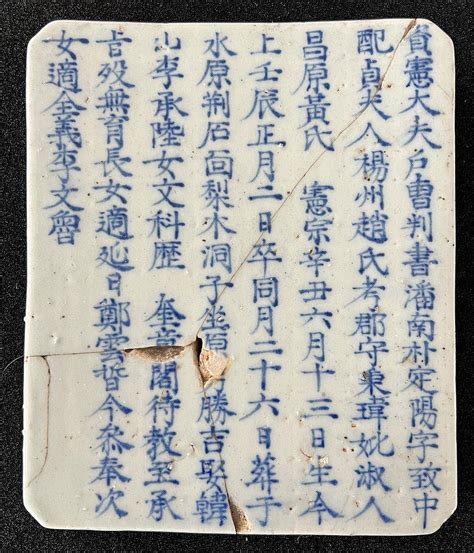 資憲大夫戶曹判書潘南朴定陽字致中
配貞夫人楊州趙氏考郡守秉瑋妣淑人
昌原黃氏 憲宗辛丑六月十三日生今
上壬辰正月二日卒同月二十六日葬于
水原荊石面梨木洞子坐原 勝吉娶韓
山李承陸女文科歷 奎章閣待敎至承
旨歿無育長女適延日鄭雲晳今參奉次
女適全義李文魯